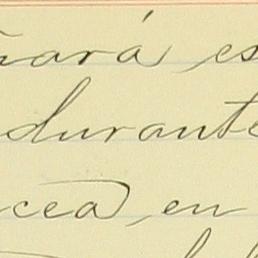 ará es
durante
cea, en